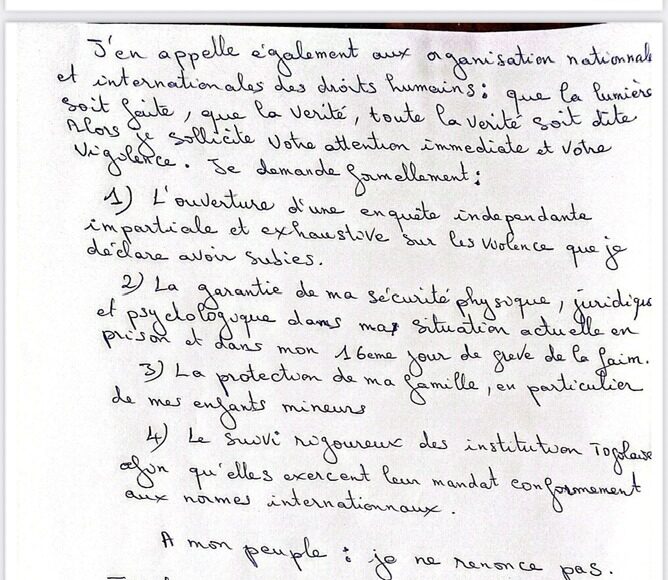 J'en appelle également aux organisation nationnale
et internationales des droits humains : que la lumière
soit faite, que la verité, toute la verité soit dite
Alors je sollicite votre attention immediate et votre
vigolence. Je demande formellement :
1) L'ouverture d'une enquête independante
impartiale et exhaustive sur les violence que je
déclare avoir subies.
2) La garantie de ma sécurité physique, juridique
et psychologuque dams ma situation actuelle en
prison et dans mon 16eme jour de greve de la faim.
3) La protection de ma famille, en particulier
de mes enfants mineurs
4) Le suivi rigoureux des institution Togolaise
afin qu'elles exercent leur mandat conformement
aux normes internationnaux.
A mon peuple : je ne renonce pas.